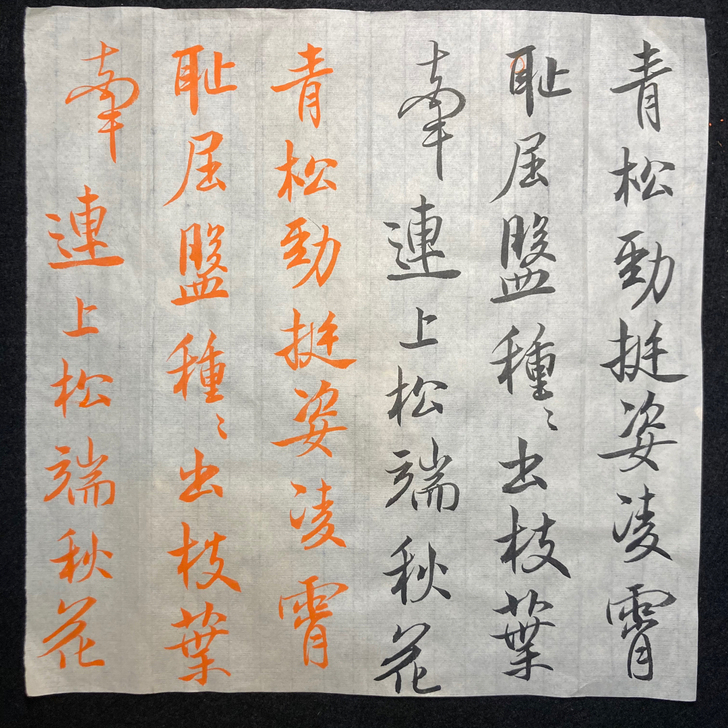 青松勁挺姿凌霄
耻屈盤種〻出枝葉
牽連上松端秋花
青松勁挺姿凌霄
耻屈盤種〻出枝葉
牽連上松端秋花